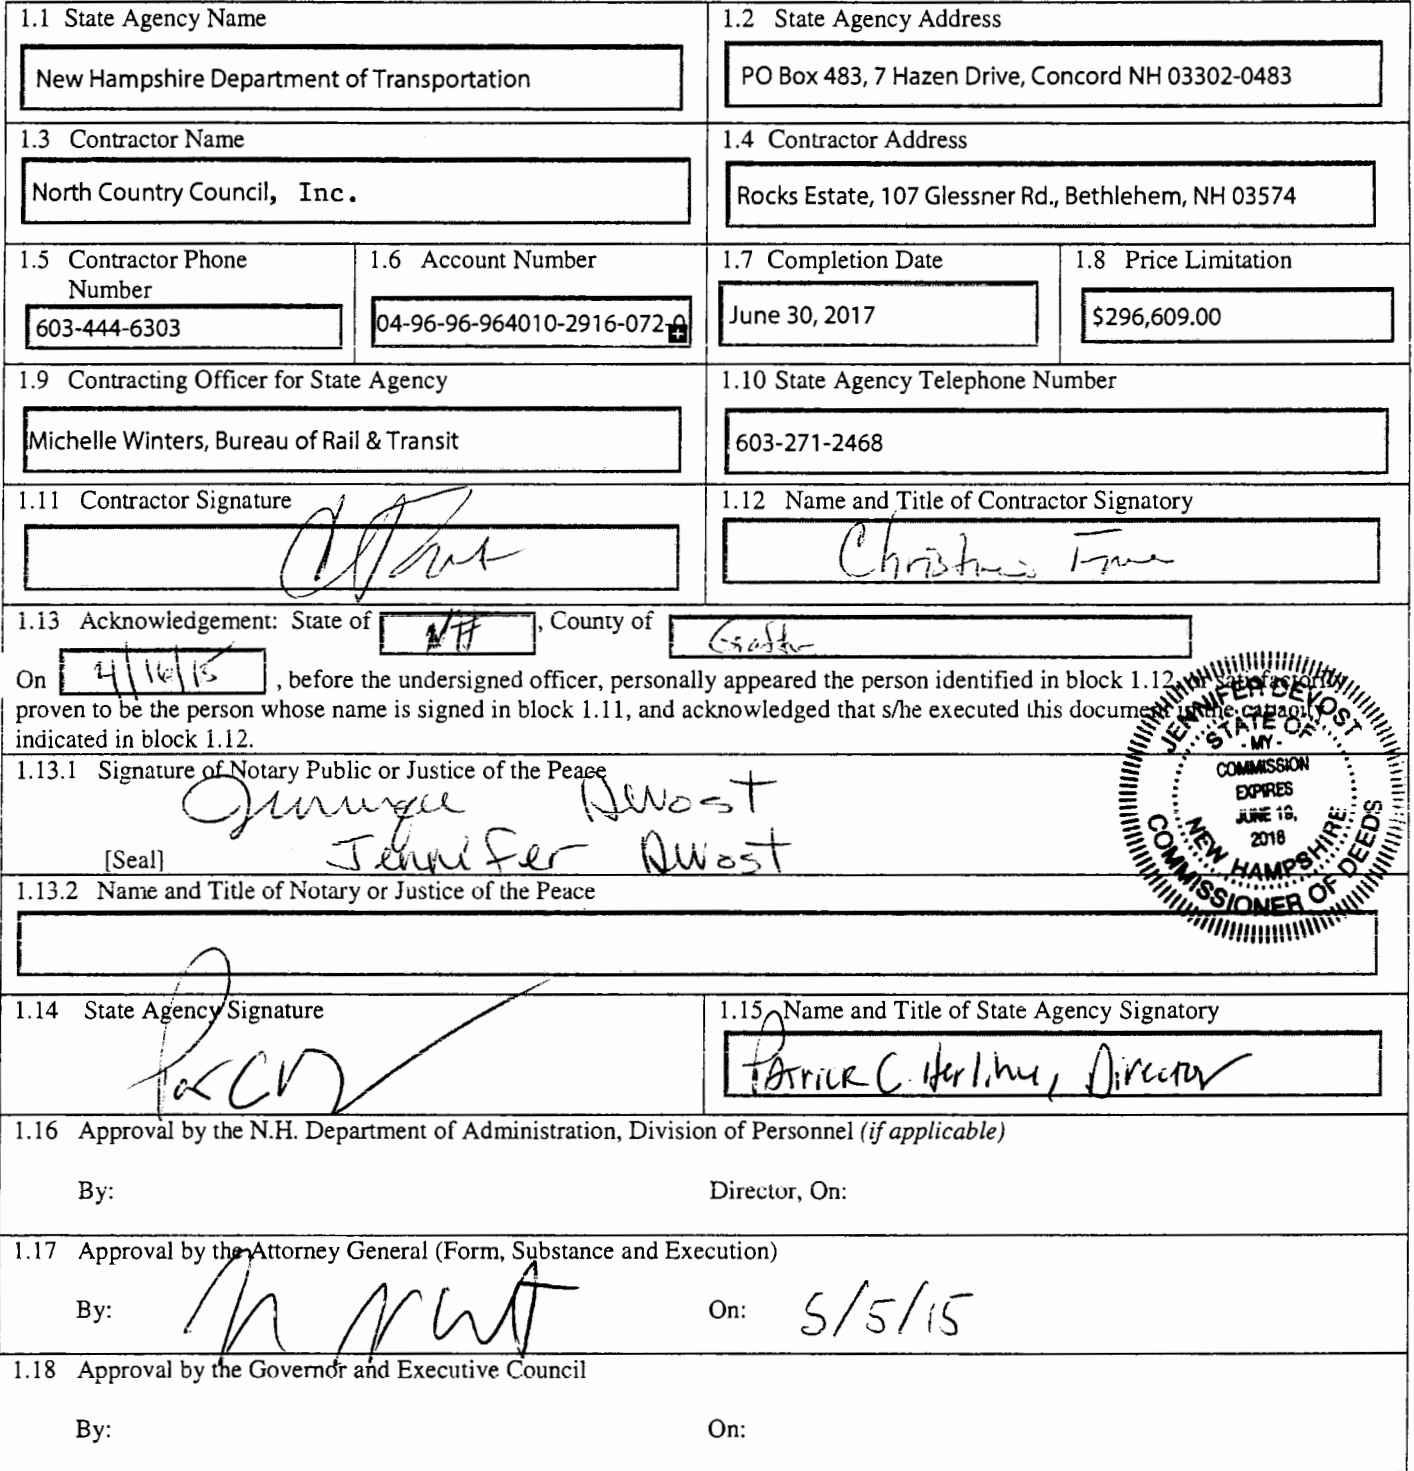 1.1 State Agency Name
New Hampshire Department of Transportation
1.2 State Agency Address
PO Box 483, 7 Hazen Drive, Concord NH 03302-0483
1.3 Contractor Name
North Country Council, Inc.
1.4 Contractor Address
Rocks Estate, 107 Glessner Rd., Bethlehem, NH 03574
1.5 Contractor Phone
Number
603-444-6303
1.6 Account Number
04-96-96-964010-2916-072-0
1.7 Completion Date
June 30, 2017
1.8 Price Limitation
$296,609.00
1.9 Contracting Officer for State Agency
Michelle Winters, Bureau of Rail & Transit
1.10 State Agency Telephone Number
603-271-2468
1.11 Contractor Signature
1.12 Name and Title of Contractor Signatory
1.13 Acknowledgement: State of NH, County of Grafton
On 4/16/15, before the undersigned officer, personally appeared the person identified in block 1.12, or satisfactorily
proven to be the person whose name is signed in block 1.11, and acknowledged that s/he executed this document in the capacity
indicated in block 1.12.
1.13.1 Signature of Notary Public or Justice of the Peace
[Seal] Jennifer DeVost
JENNIFER DEVOST
STATE OF
- MY -
COMMISSION
EXPIRES
JUNE 19,
2018
NEW HAMPSHIRE
COMMISSIONER OF DEEDS
1.13.2 Name and Title of Notary or Justice of the Peace
1.14 State Agency Signature
1.15 Name and Title of State Agency Signatory
Patrick C. Herlihy, Director
1.16 Approval by the N.H. Department of Administration, Division of Personnel (if applicable)
By: Director, On:
1.17 Approval by the Attorney General (Form, Substance and Execution)
By: On: 5/5/15
1.18 Approval by the Governor and Executive Council
By: On: